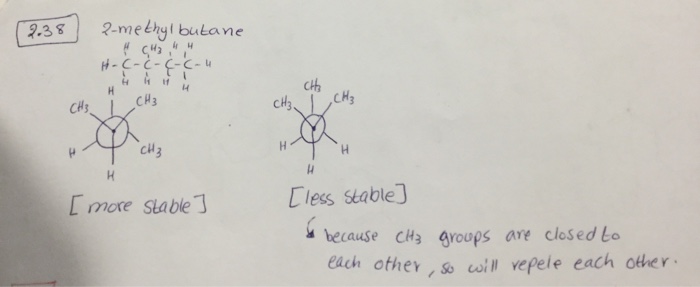 2.38 2-methylbutane
H CH3 H H
H-C-C-C-C-H
H H H H
H
CH3 CH3
H CH3
H
[more stable]
CH3
CH3 CH3
H H
H
[less stable]
because CH3 groups are closed to
each other, so will repele each other.